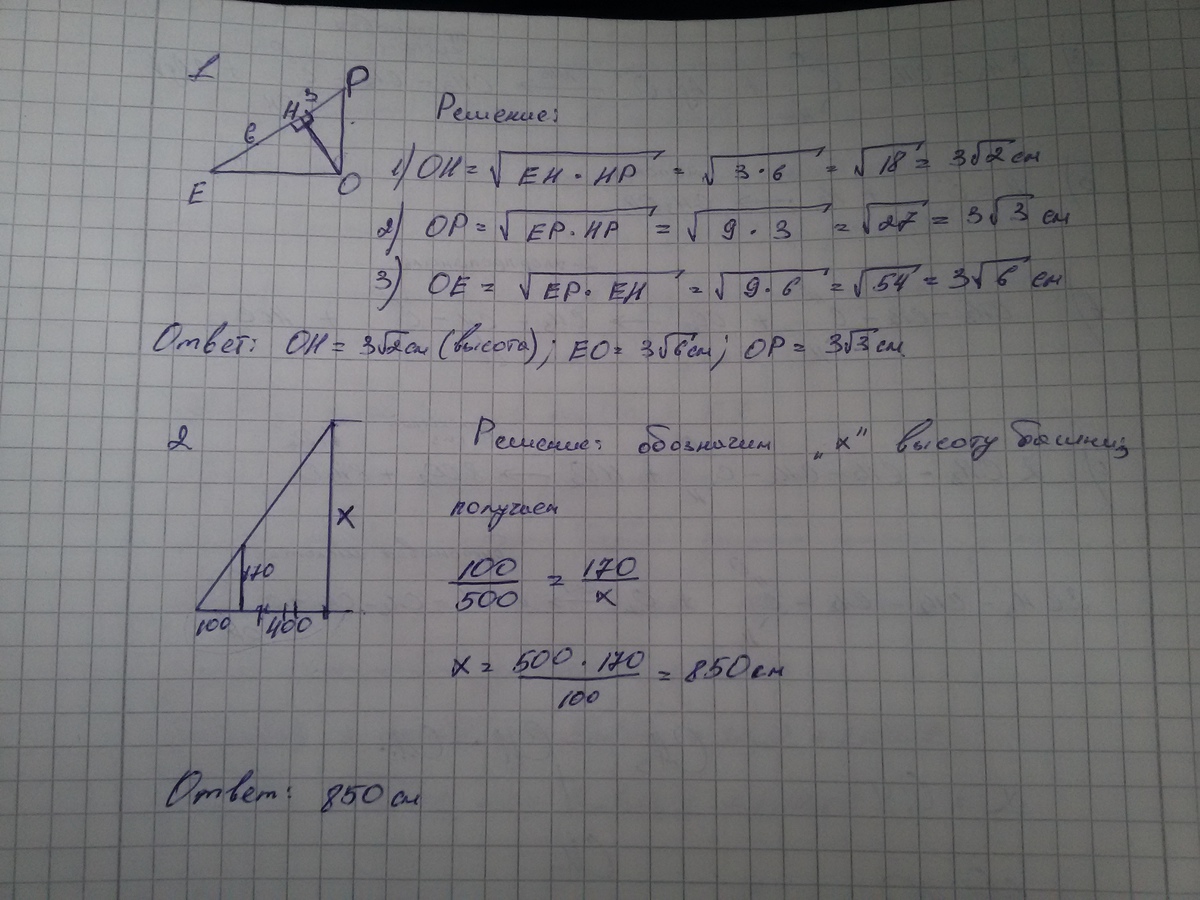 1
P
3
H
6
E
O
Решение:
1) OH = √EH · HP = √3 · 6 = √18 = 3√2 см
2) OP = √EP · HP = √9 · 3 = √27 = 3√3 см
3) OE = √EP · EH = √9 · 6 = √54 = 3√6 см
Ответ: OH = 3√2 см (высота); EO = 3√6 см; OP = 3√3 см
2
Решение: обозначим „x" высоту башни;
получаем
x
170
100
400
100/500 = 170/x
x = 500 · 170/100 = 850 см
Ответ: 850 см